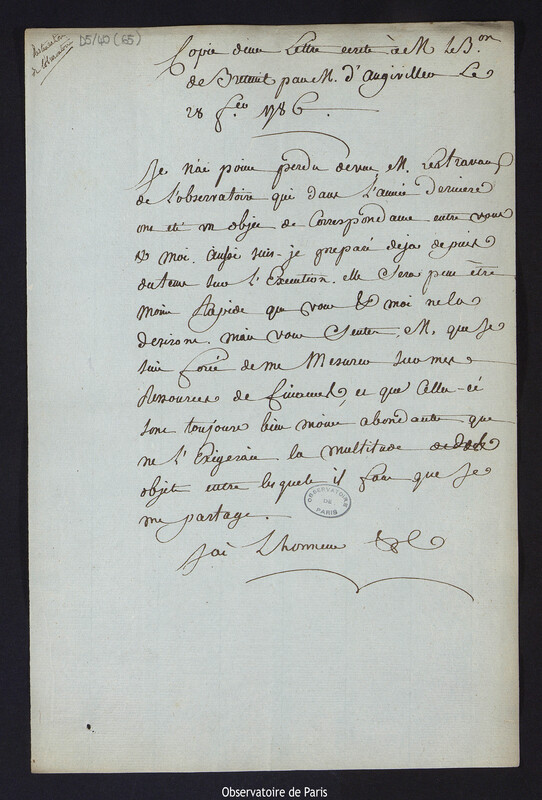 Restauration
de l'observatoire
D5/40 (65)
Copie d'une Lettre ecrite à M le B.on
de Breteuil par M. d'Angiviller Le
28 fev 1786.
Je n'ai point perdu de vue, M. les travaux
de l'observatoire qui dans L'année derniere
ont eté un objet de Correspondance entre vous
& moi. aussi suis-je preparé deja depuis
du tems sur L'Execution. elle Sera peut être
moins Rapide que vous & moi ne la
desirons. mais vous Sentez, M, que Je
suis forcé de me Mesurer sur mes
Ressources de finances, et que Celles-cé
sont toujours bien moins abondantes que
ne L'Exigerait la multitude
objets entre lesquels il faut que Je
me partage.
OBSERVATOIRE
DE
PARIS
J'ai L'honneur &c
Observatoire de Paris